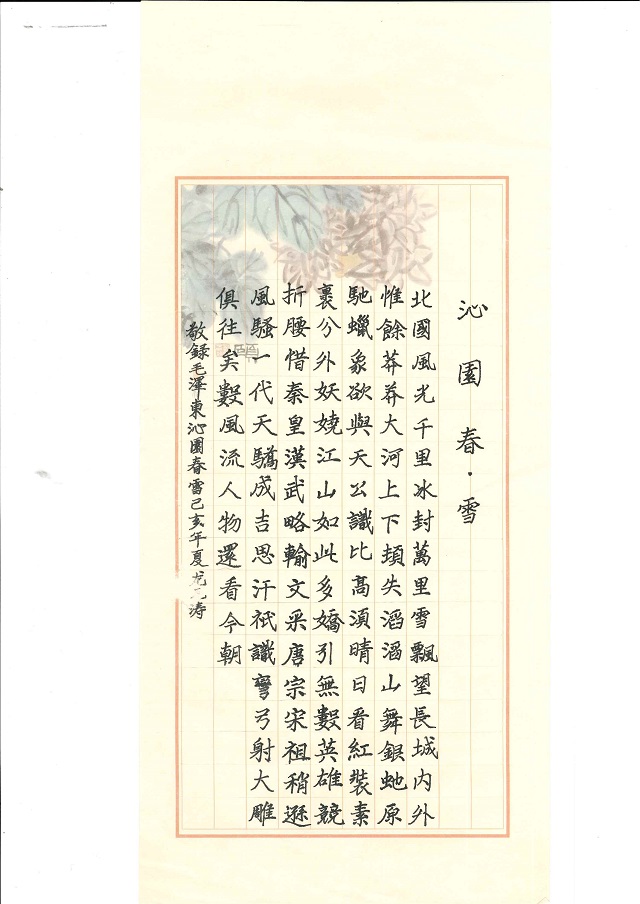 沁園春·雪
北國風光千里冰封萬里雪飄望長城内外
惟餘莽莽大河上下頓失滔滔山舞銀虵原
馳蠟象欲與天公識比高湏晴日看紅裝素
裹分外妖嬈江山如此多嬌引無數英雄競
折腰惜秦皇漢武略輸文采唐宗宋祖稍遜
風騷一代天驕成吉思汗祇識彎弓射大雕
俱往矣數風流人物還看今朝
敬録毛澤東沁園春雪己亥年夏龙涛